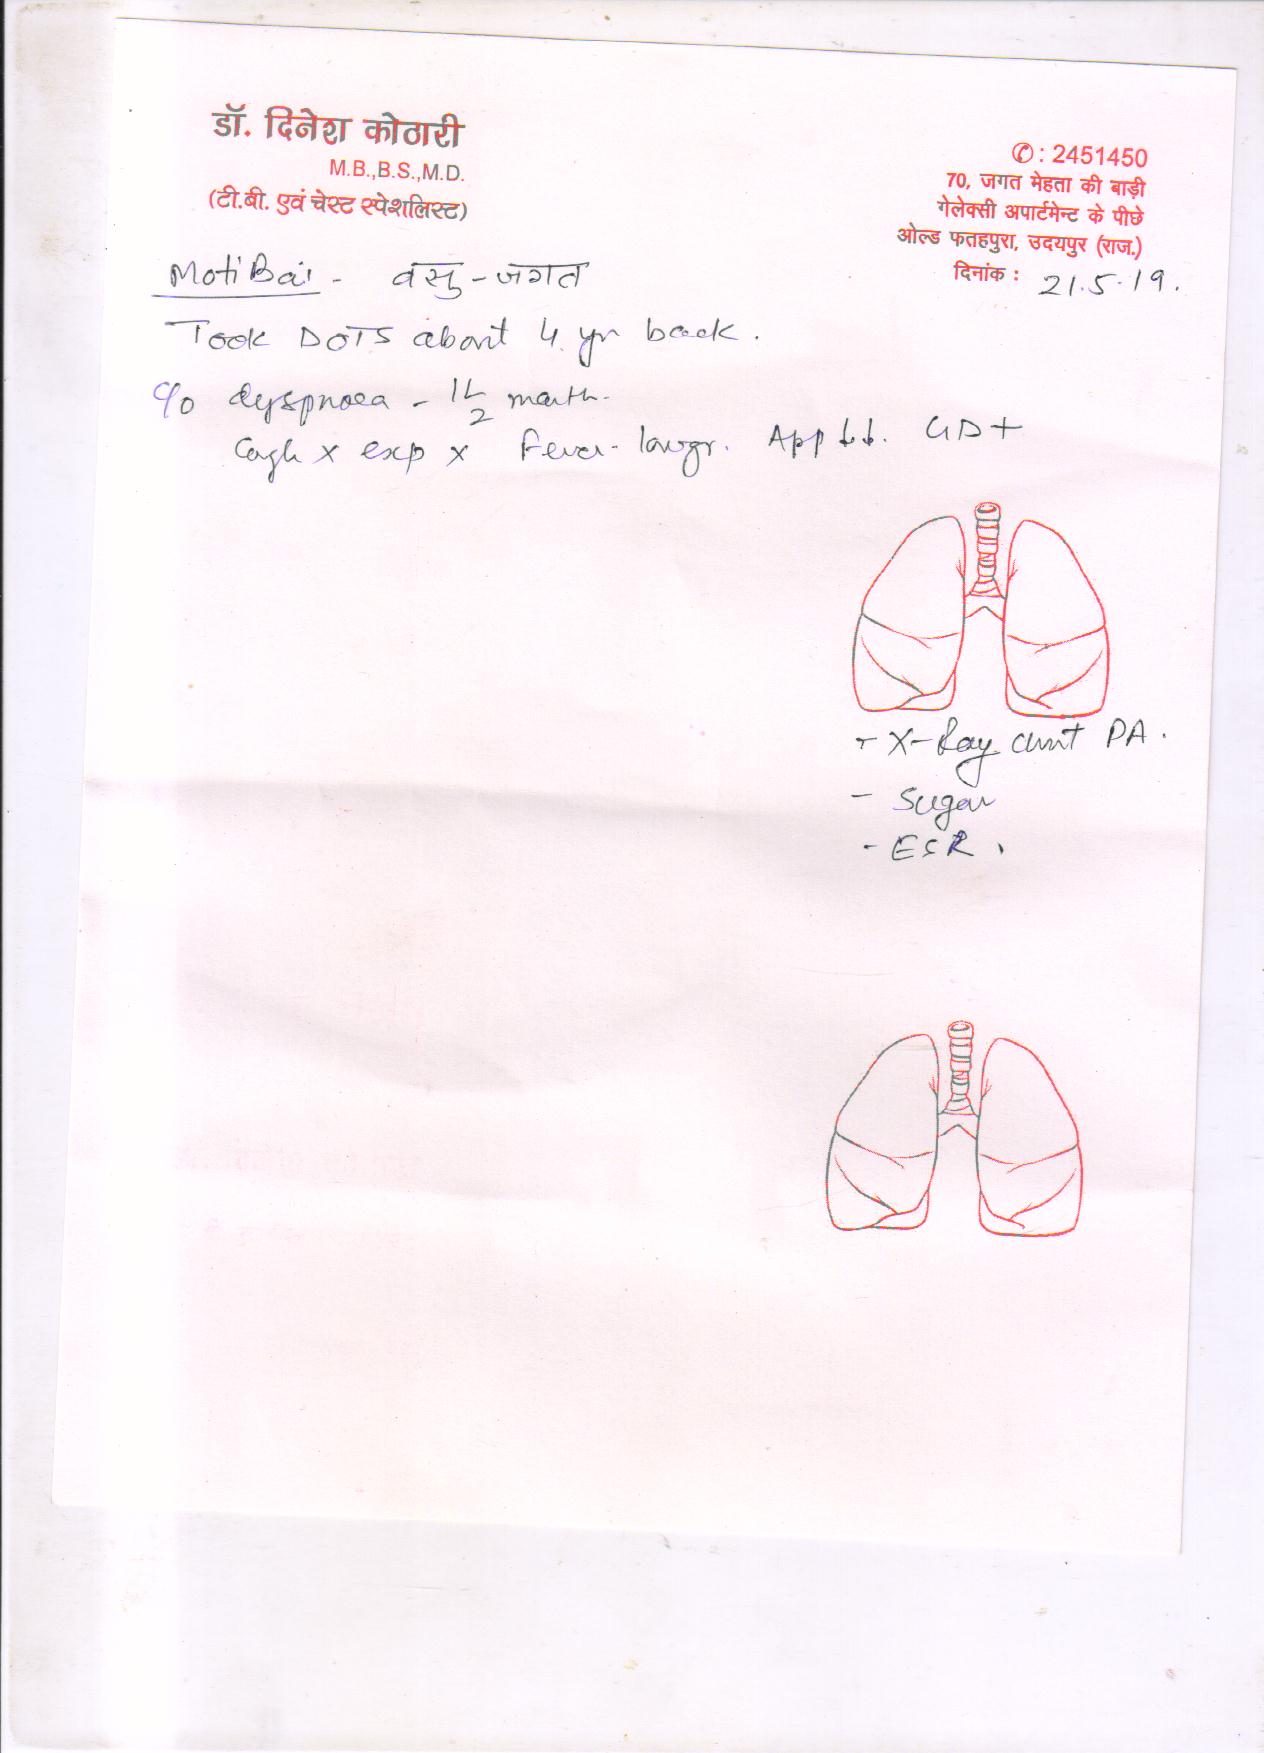 डॉ. दिनेश कोठारी
M.B.,B.S.,M.D.
(टी.बी. एवं चेस्ट स्पेशलिस्ट)
✆: 2451450
70, जगत मेहता की बाड़ी
गेलेक्सी अपार्टमेन्ट के पीछे
ओल्ड फतहपुरा, उदयपुर (राज.)
दिनांक : 21.5.19.
Moti Bai - वसु-जगत
Took DOTS about 4 yr back.
c/o dyspnoea - 1 1/2 month.
Cough x exp x Fever - low gr. App ↓↓. GD+
- X-Ray chest PA.
- Sugar
- ESR.